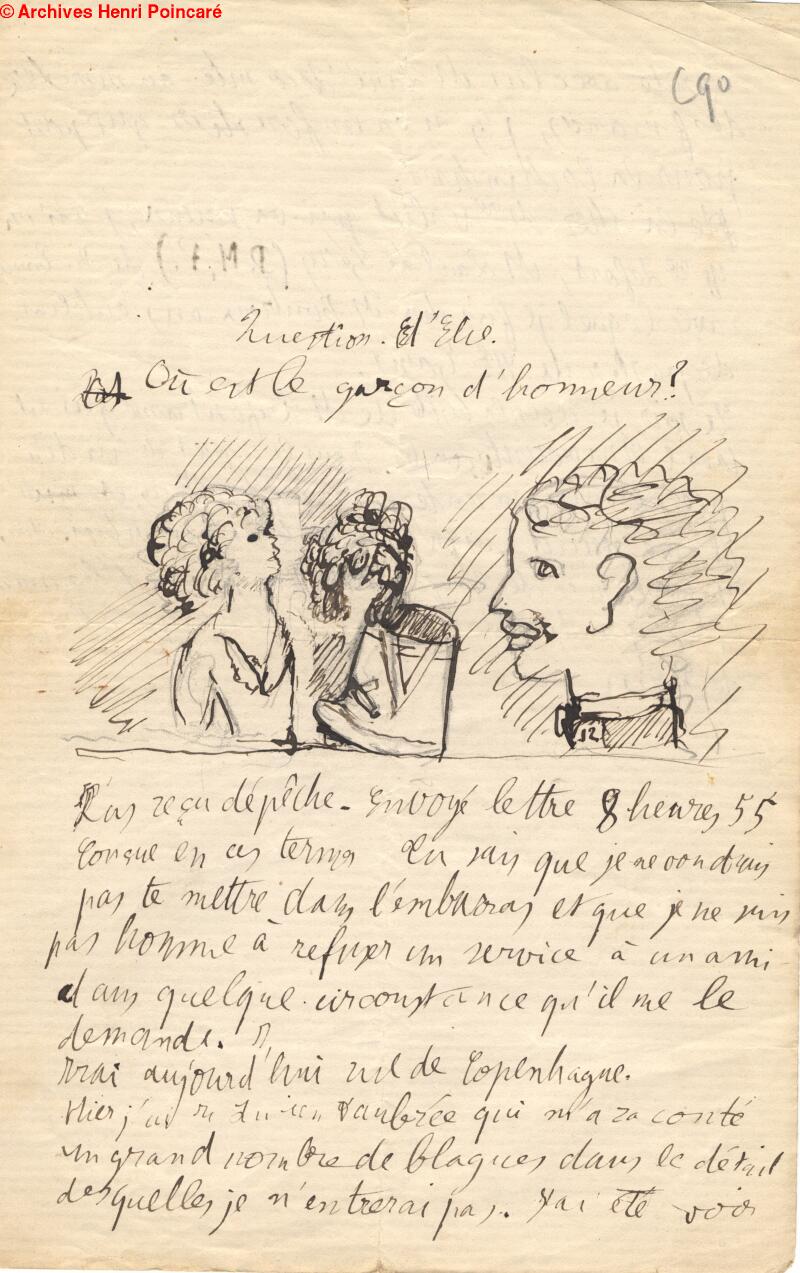 © Archives Henri Poincaré
C90
Question. d'Elie.
Où est le garçon d'honneur?
12
Pas reçu dépêche. Envoyé lettre 8 heures 55
conçue en ces termes Tu sais que je ne voudrais
pas te mettre dans l'embarras et que je ne suis
pas homme à refuser un service à un ami
dans quelque circonstance qu'il me le
demande.
Irai aujourd'hui rue de Copenhague.
Hier j'ai vu Lucien Daubrée qui m'a raconté
un grand nombre de blagues dans le détail
desquelles je n'entrerai pas. J'ai été voir